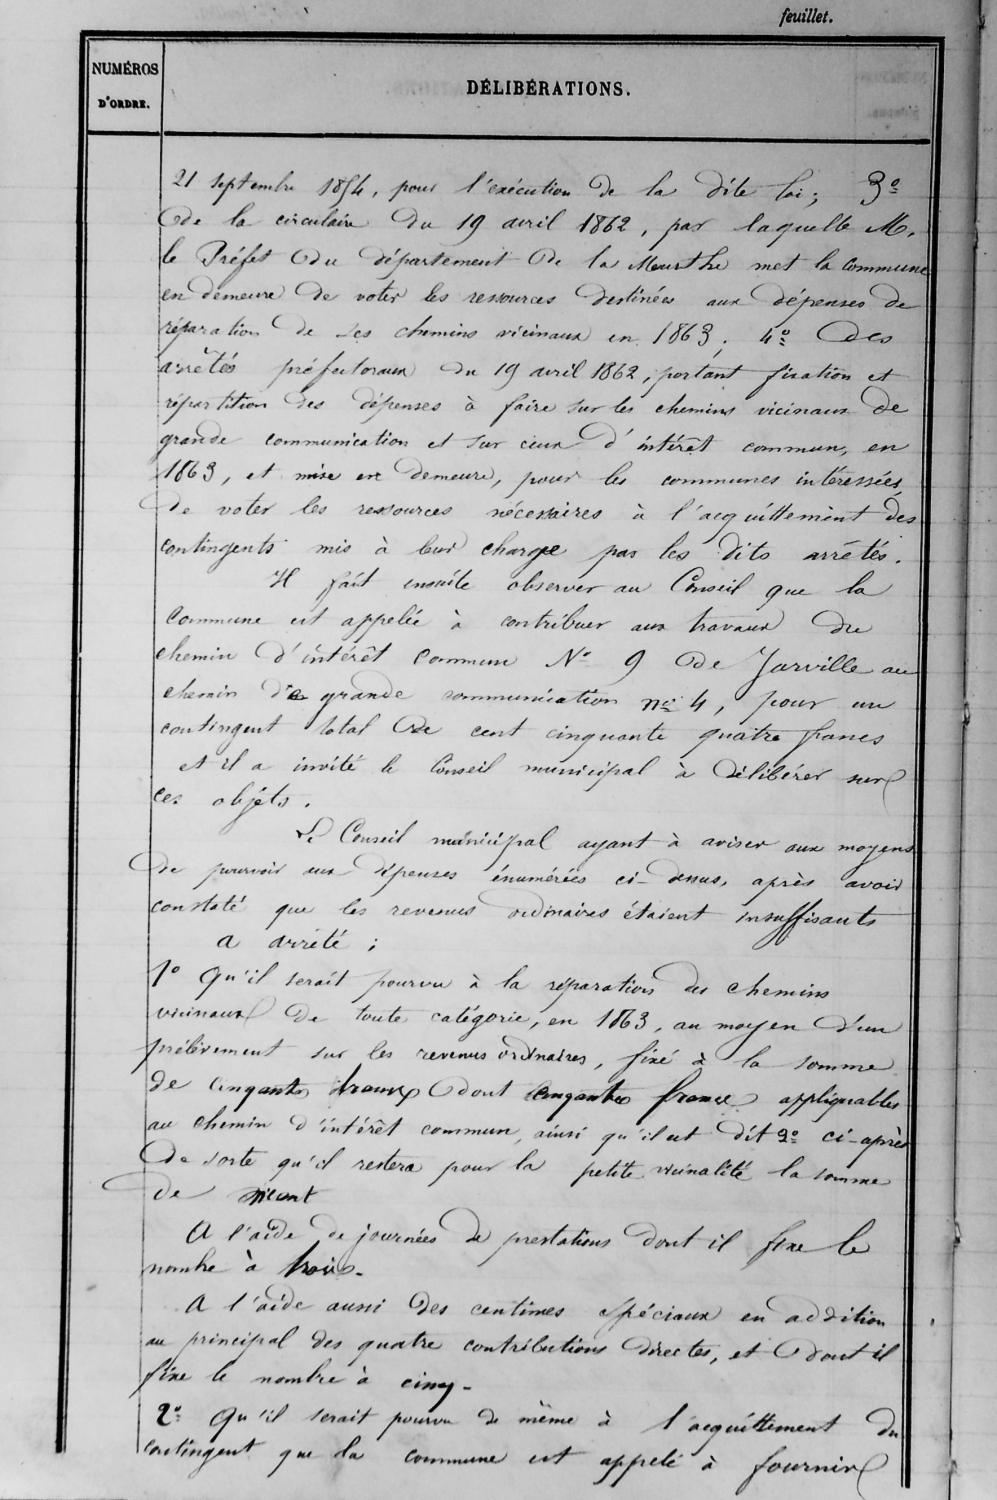 feuillet.
NUMÉROS
D'ORDRE.
DÉLIBÉRATIONS.
21 septembre 1854, pour l'exécution de la dite loi; 3º
de la circulaire du 19 avril 1862, par laquelle M.
le Préfet du département de la Meurthe met la commune
en demeure de voter les ressources destinées aux dépenses de
réparation de ses chemins vicinaux en 1863; 4º des
arrêtés préfectoraux du 19 avril 1862, portant fixation et
répartition des dépenses à faire sur les chemins vicinaux de
grande communication et sur ceux d'intérêt commun, en
1863, et mise en demeure, pour les communes intéressées,
de voter les ressources nécessaires à l'acquittement des
contingents mis à leur charge par les dits arrêtés.
Il fait ensuite observer au Conseil que la
commune est appelée à contribuer aux travaux du
chemin d'intérêt commun Nº 9 de Jarville au
chemin de grande communication nº 4, pour un
contingent total de cent cinquante quatre francs
et il a invité le Conseil municipal à délibérer sur
ces objets.
Le Conseil municipal ayant à aviser aux moyens
de pourvoir aux dépenses énumérées ci-dessus, après avoir
constaté que les revenus ordinaires étaient insuffisants
a arrêté;
1º Qu'il serait pourvu à la réparation des chemins
vicinaux de toute catégorie, en 1863, au moyen d'un
prélèvement sur les revenus ordinaires, fixé à la somme
de cinqante francs dont cinqante francs appliquables
au chemin d'intérêt commun, ainsi qu'il est dit 2º ci-après
de sorte qu'il restera pour la petite vicinalité la somme
de
A l'aide de journées de prestations dont il fixe le
nombre à trois.
A l'aide aussi des centimes spéciaux en addition
au principal des quatre contributions directes, et dont il
fixe le nombre à cinq.
2º Qu'il serait pourvu de même à l'acquittement du
contingent que la commune est appelé à fournir